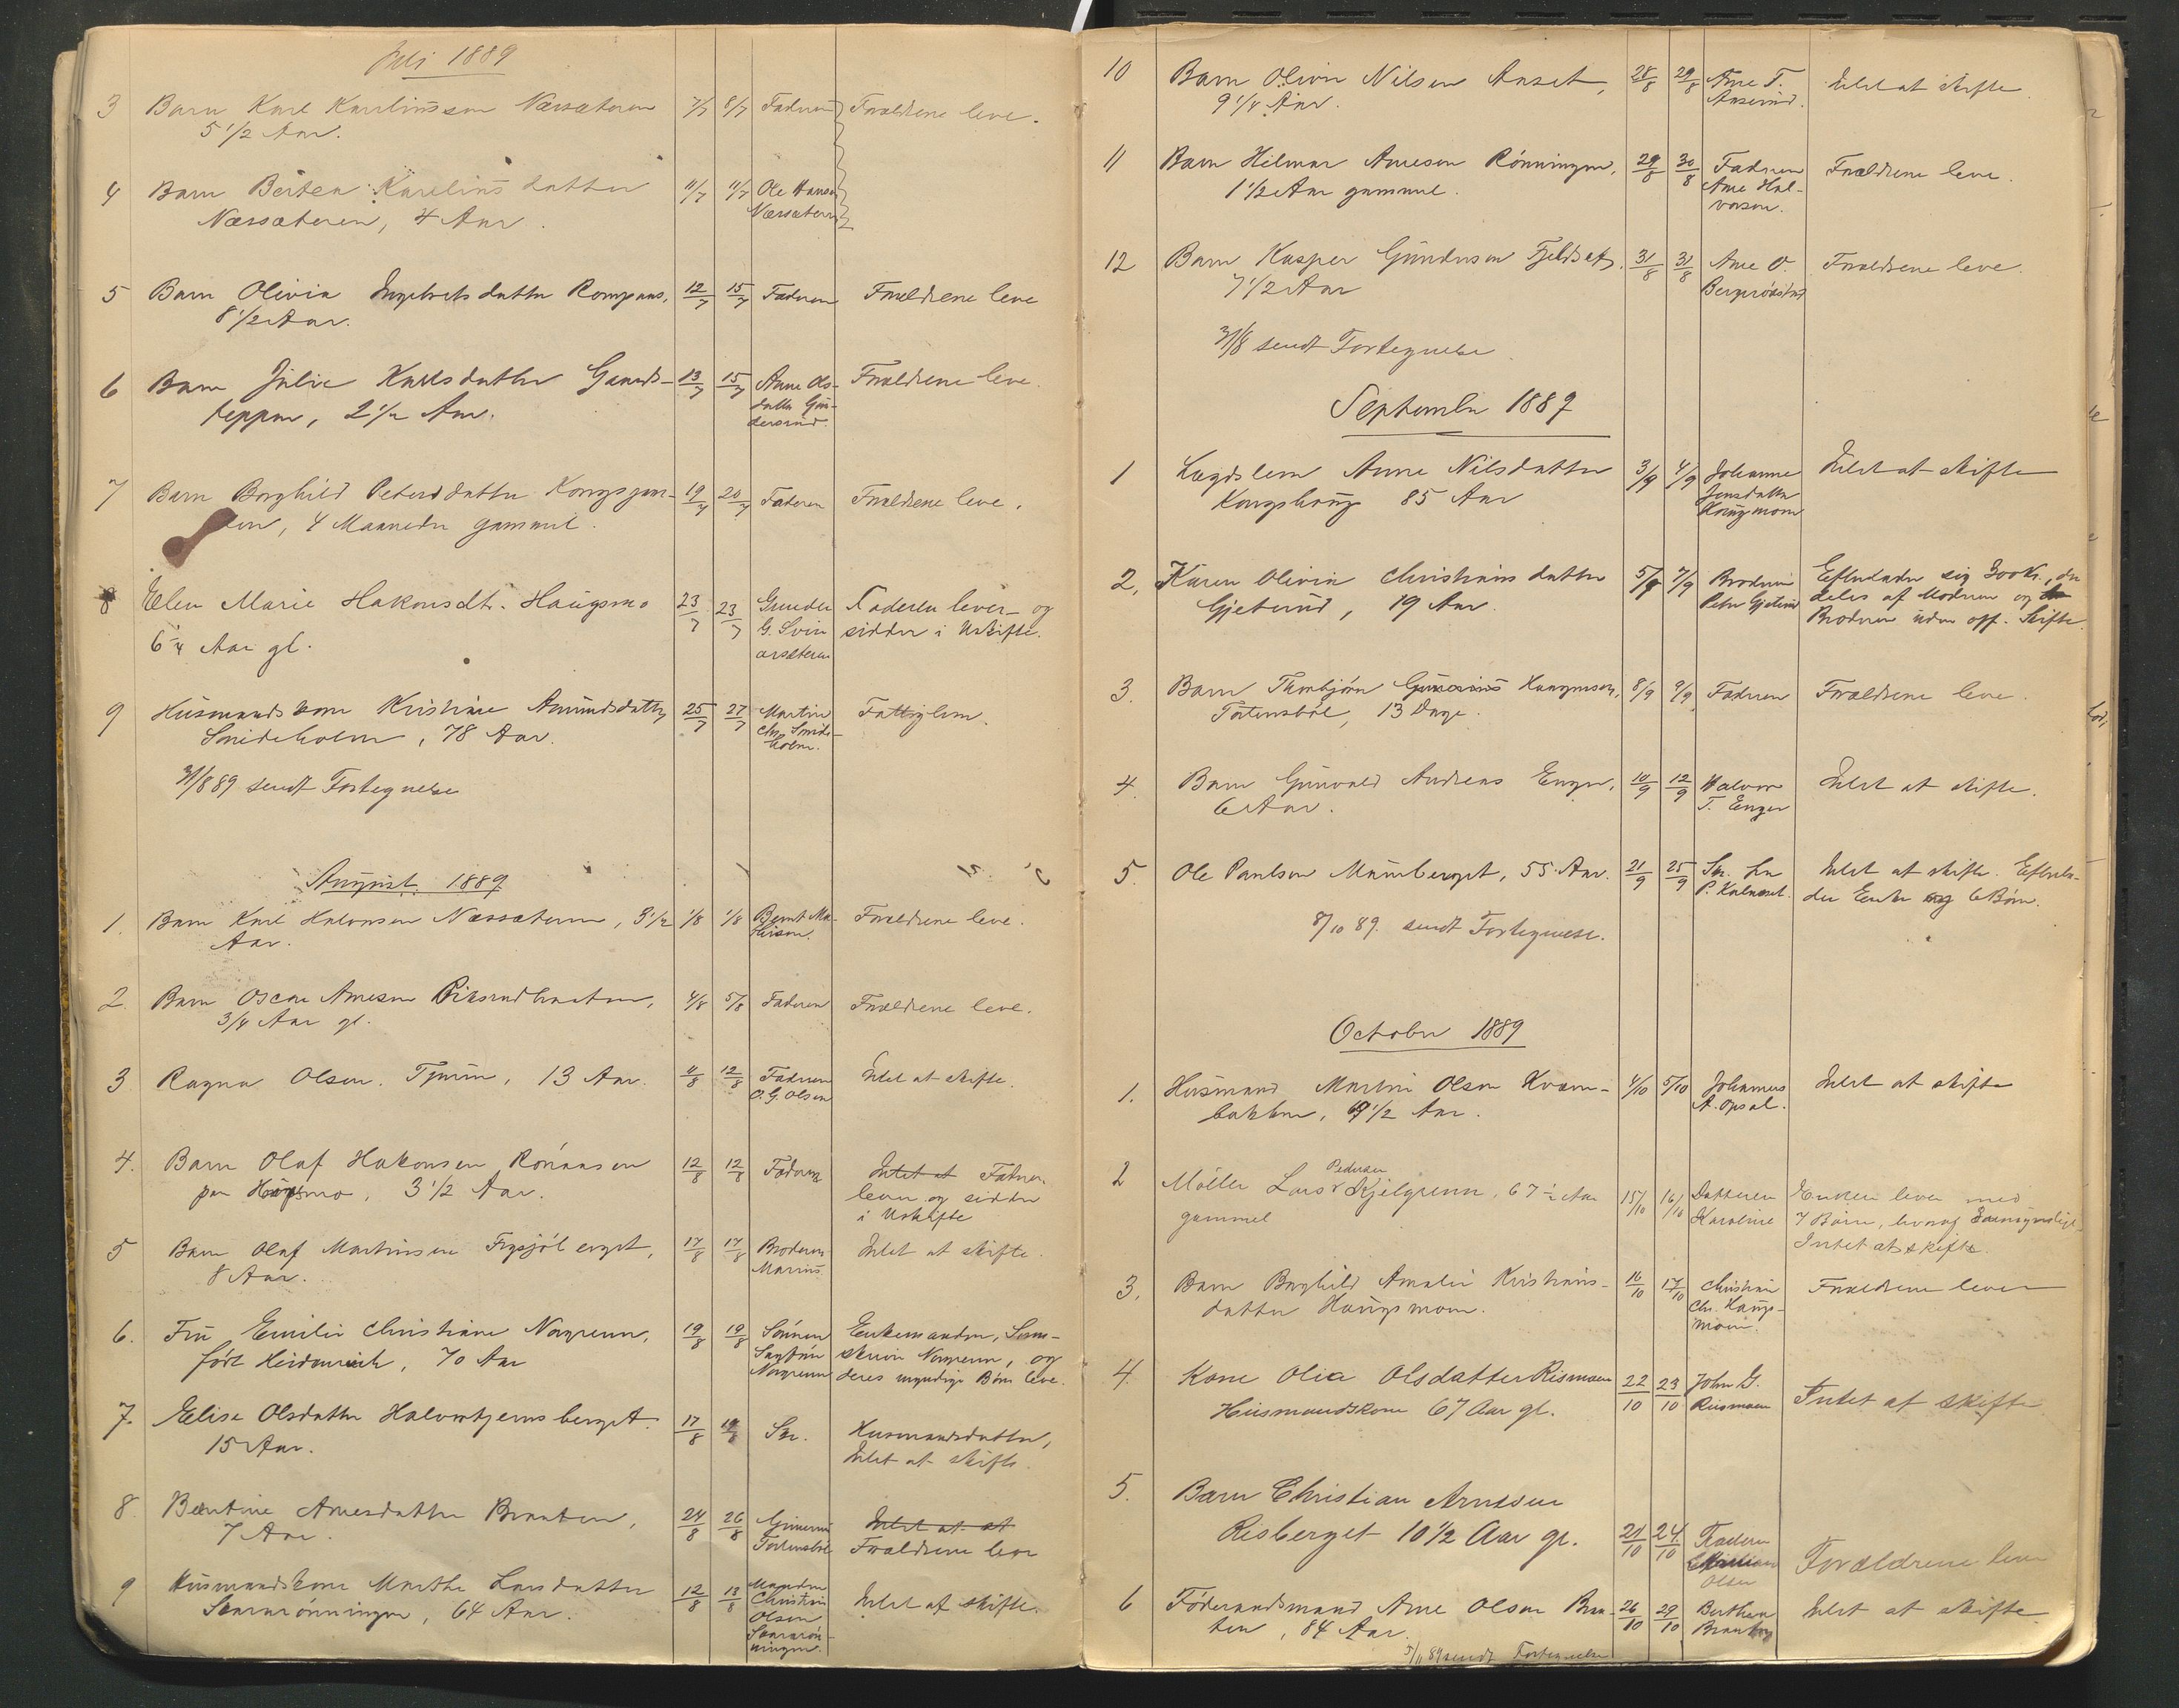 Juli 1889
3 Barn Karl Karlinussen Næssæteren 7/7 8/7 Faderen Forældrene leve.
5 1/2 Aar.
4 Barn Bertea Karelius datter 11/7 11/7 Ole Hansen
Næssæteren, 4 Aar. Næssæteren
5 Barn Olivia Ingebrets datter 12/7 15/7 Faderen Forældrene leve
8 1/2 Aar.
6 Barn Julie Karlsdatter Gaards- 13/7 15/7 Anne Ols- Forældrene leve.
teppen, 2 1/2 Aar. datter Gun-
dersrud.
7 Barn Borghild Petersdatter 19/7 20/7 Faderen Forældrene leve.
4 Maaneder gammel.
8 Elen Marie Hakonsdt. Haugsmo 23/7 23/7 Gunder Faderen lever og
6 1/4 Aar gl. G. sidder i Uskifte.
9 Husmandskone Kristine Amundsdatter 25/7 27/7 Martin Fattiglem.
Smideholen, 78 Aar. Chr. Smide-
holen.
31/8 89 sendt Fortegnelse
August 1889
1. Barn Karl Halvorsen Næssæteren, 3 1/2 1/8 1/8 Bernt Ma- Forældrene leve.
Aar. thisen.
2. Barn Oscar Arnesen 4/8 5/8 Faderen Forældrene leve.
3/4 Aar gl.
3 Ragna Olsen. Tjuren, 13 Aar. 11/8 12/8 Faderen Intet at skifte.
O. G. Olsen
4. Barn Olaf Hakonsen 12/8 12/8 Faderen Intet at Faderen
paa Haugsmo, 3 1/2 Aar. lever og sidder
i Uskifte
5 Barn Olaf Martinsen 17/8 17/8 Broderen Intet at skifte.
8 Aar. Marius
6. Fru Emilie Christiane Norgrenn, 19/8 19/8 Sønnen Enkemanden, Soren-
født Heidenreich, 70 Aar Sagfører skriver Norgrenn, og
Norgrenn deres myndige Børn leve.
7. Elise Olsdatter Halvortjernsberget. 17/8 19/8 Husmandsdatter,
15 Aar. Intet at skifte.
8. Berntine Arnesdatter Braaten, 24/8 26/8 Gunerius Intet at at
7 Aar. Tortensbøl Forældrene leve
9 Husmandskone Marthe Larsdatter 12/8 13/8 Manden Intet at skifte.
Saararønningen, 64 Aar. Christian
Olsen
Saararøn-
ningen.
10 Barn Olivia Nilsen Anset, 28/8 29/8 Arne T. Intet at skifte.
9 1/4 Aar.
11 Barn Hilmar Arnesen Rønningen, 29/8 30/8 Faderen Forældrene leve.
1 1/2 Aar gammel. Arne Hal-
vorsen.
12 Barn Kasper Gundersen Fjeldsæt, 31/8 31/8 Arne O. Forældrene leve.
7 1/2 Aar
31/8 sendt Fortegnelse
September 1889
1 Lægdslem Anne Nilsdatter 3/9 4/9 Johanne Intet at skifte
Kongshaug 85 Aar Jensdatter
Haugmoen
2, Karen Olivia Christians datter 5/9 7/9 Broderen Efterlader sig 300 Kr., der
Gjeterud, 19 Aar. Peter Gjeterud deles af Moderen og
Broderen uden off. Skifte.
3. Barn Thorbjørn Gunerius Haagensen, 8/9 9/9 Faderen Forældrene leve.
Tortensbøl, 13 Dage.
4. Barn Gunvald Andreas Enger, 10/9 12/9 Halvor Intet at skifte.
6 Aar. T. Enger
5. Ole Paulsen Murberget, 55 Aar. 21/9 25/9 Intet at skifte. Efterla-
P. der Enke og 6 Børn.
8/10 89. sendt Fortegnelse.
October 1889
1. Husmand Martin Olsen Kvern- 4/10 5/10 Johannes Intet at skifte
bakken, 1/2 Aar. A. Opsal.
Pedersen
2 Møller Lars Kjelgrenn, 67 1/2 Aar 15/10 16/10 Datteren Enken lever med
gammel Karoline 7 Børn, hvoraf
Intet at skifte.
3. Barn Borghild Amalie Kristians- 16/10 17/10 Christian Forældrene lever
datter Haugsmoen. Chr. Haugs-
moen.
4. Kone Olia Olsdatter Rismoen 22/10 23/10 John G. Intet at skifte
Husmandskone 67 Aar gl. Rismoen
5. Barn Christian Arnesen
Risberget 10 1/2 Aar gl. 21/10 24/10 Faderen Forældrene lever
Olsen
6 Føderaadsmand Arne Olsen Braa- 26/10 29/10 Berthea Intet at skifte.
ten, 84 Aar. Braaten
5/11 89 sendt Fortegnelse